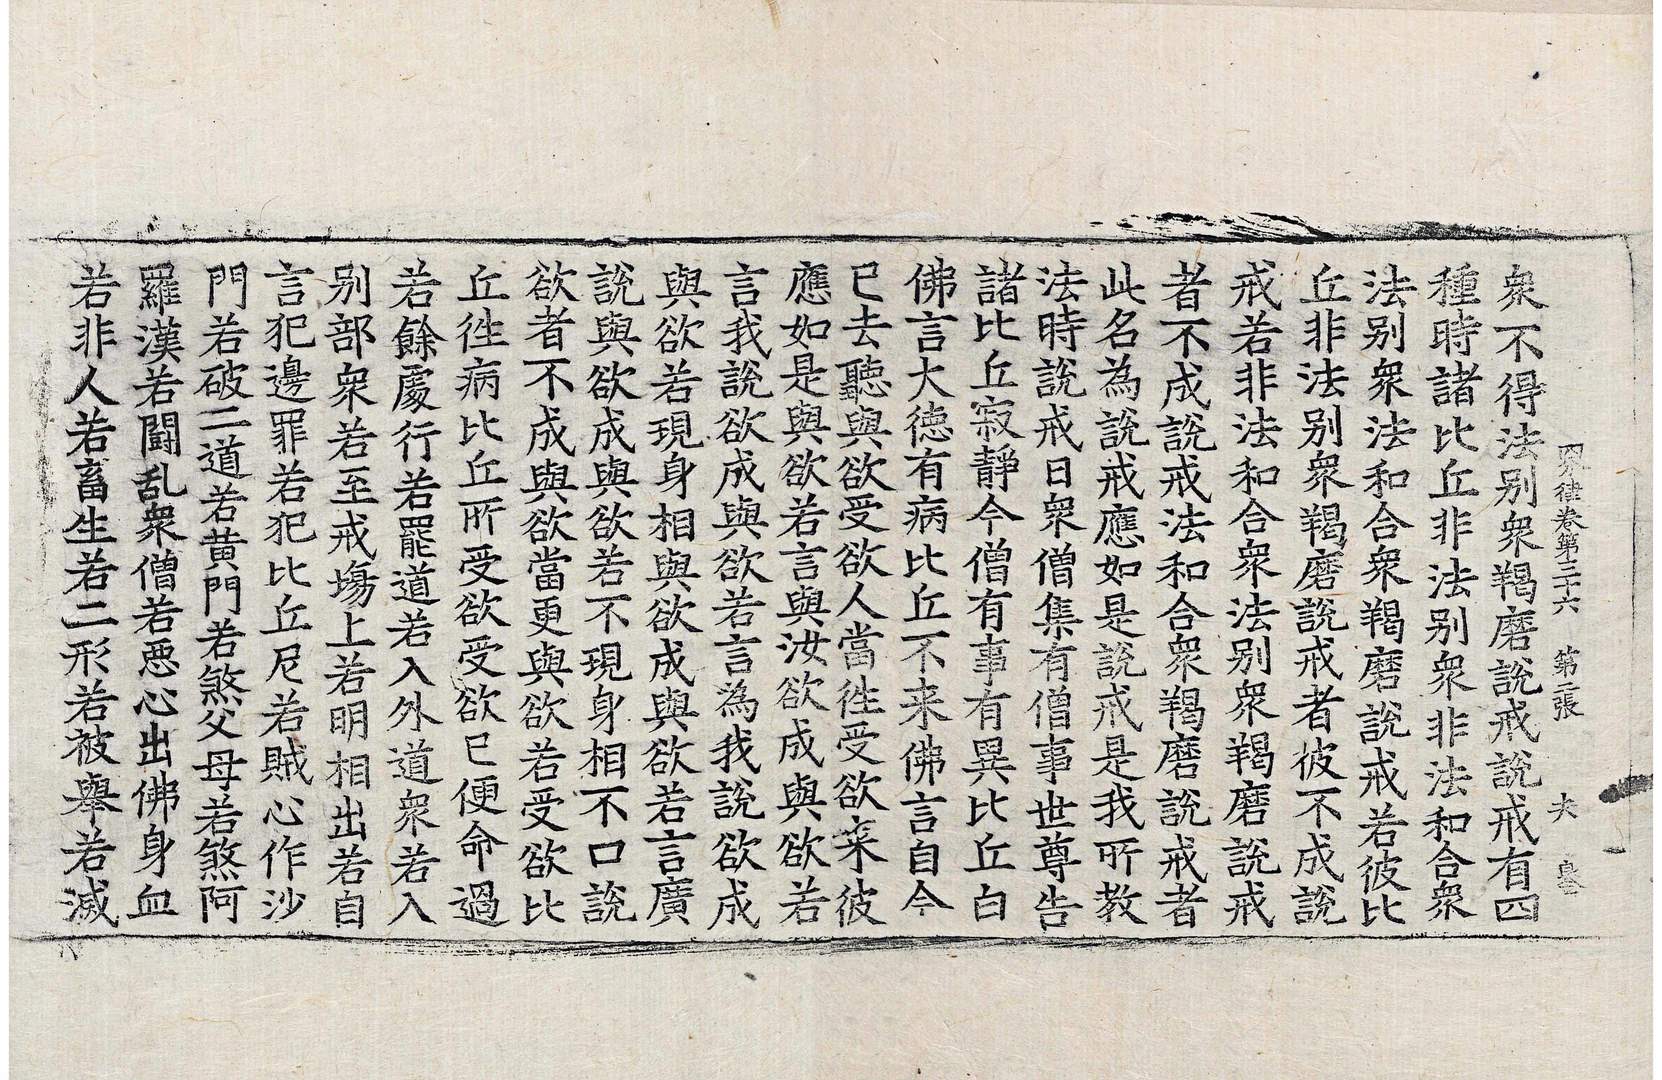 四分律卷第三十六　第二張　夫
衆不得法別衆羯磨說戒說戒有四
種時諸比丘非法別衆非法和合衆
法別衆法和合衆羯磨說戒若彼比
丘非法別衆羯磨說戒者彼不成說
戒若非法和合衆法別衆羯磨說戒
者不成說戒法和合衆羯磨說戒者
此名為說戒應如是說戒是我所教
法時說戒日衆僧集有僧事世尊告
諸比丘寂靜今僧有事有異比丘白
佛言大德有病比丘不来佛言自今
已去聽與欲受欲人當徃受欲来彼
應如是與欲若言與汝欲成與欲若
言我說欲成與欲若言為我說欲成
與欲若現身相與欲成與欲若言廣
說與欲成與欲若不現身相不口說
欲者不成與欲當更與欲若受欲比
丘徃病比丘所受欲受欲已便命過
若餘處行若罷道若入外道衆若入
別部衆若至戒塲上若明相出若自
言犯邊罪若犯比丘尼若賊心作沙
門若破二道若黄門若煞父母若煞阿
羅漢若鬪乱衆僧若惡心出佛身血
若非人若畜生若二形若被舉若滅